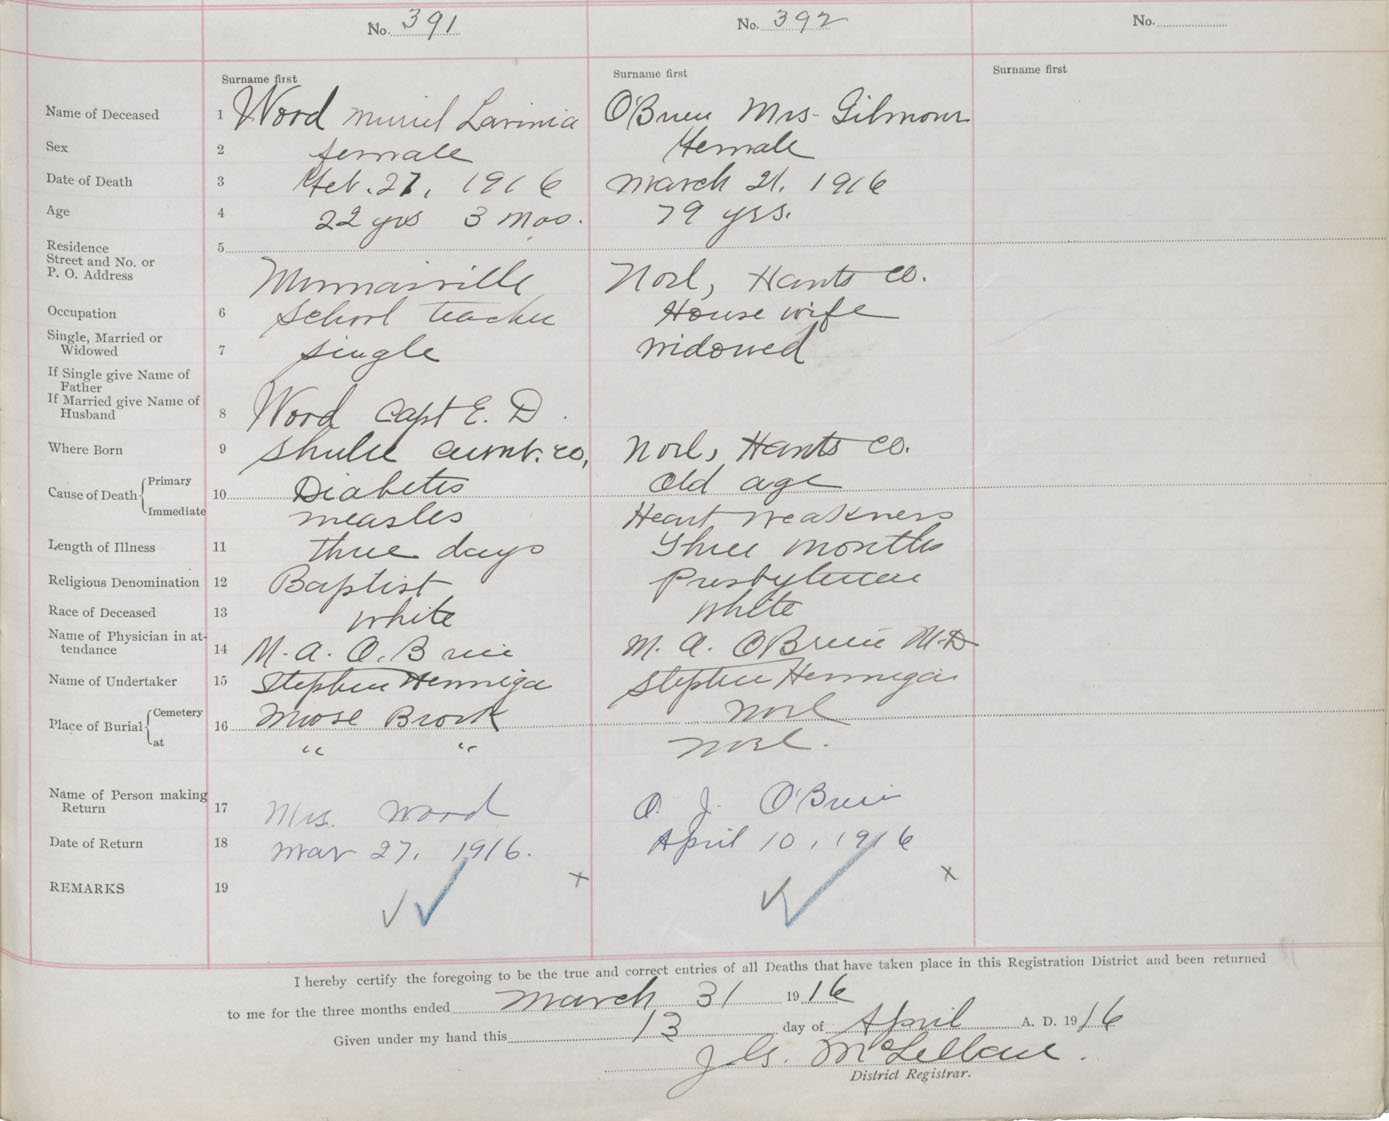 No. 391
No. 392
No.
Surname first
Surname first
Surname first
Name of Deceased 1 Word Muriel Lavinia O'Brien Mrs Gilmour
Sex 2 female Female
Date of Death 3 Feb. 27, 1916 March 21, 1916
Age 4 22 yrs 3 mos. 79 yrs.
Residence 5
Street and No. or
P. O. Address Minnasville Noel, Hants Co.
Occupation 6 School teacher House wife
Single, Married or
Widowed 7 single widowed
If Single give Name of
Father
If Married give Name of
Husband 8 Word Capt E. D.
Where Born 9 Shulee Cumb. Co, Noel, Hants Co.
Cause of Death Primary 10 Diabetis Old age
Immediate measles Heart weakness
Length of Illness 11 three days Three months
Religious Denomination 12 Baptist Presbyterian
Race of Deceased 13 white white
Name of Physician in at-
tendance 14 M. A. O.Brien M. A. O'Brien M.D
Name of Undertaker 15 Stephen Hennigar Stephen Hennigar
Place of Burial Cemetery 16 Moose Brook Noel
at " " Noel.
Name of Person making
Return 17 Mrs. Word O. J. O'Brien
Date of Return 18 Mar 27, 1916. April 10, 1916
REMARKS 19
I hereby certify the foregoing to be the true and correct entries of all Deaths that have taken place in this Registration District and been returned
to me for the three months ended March 31 1916
Given under my hand this 13 day of April A. D. 1916
McLellan.
District Registrar.